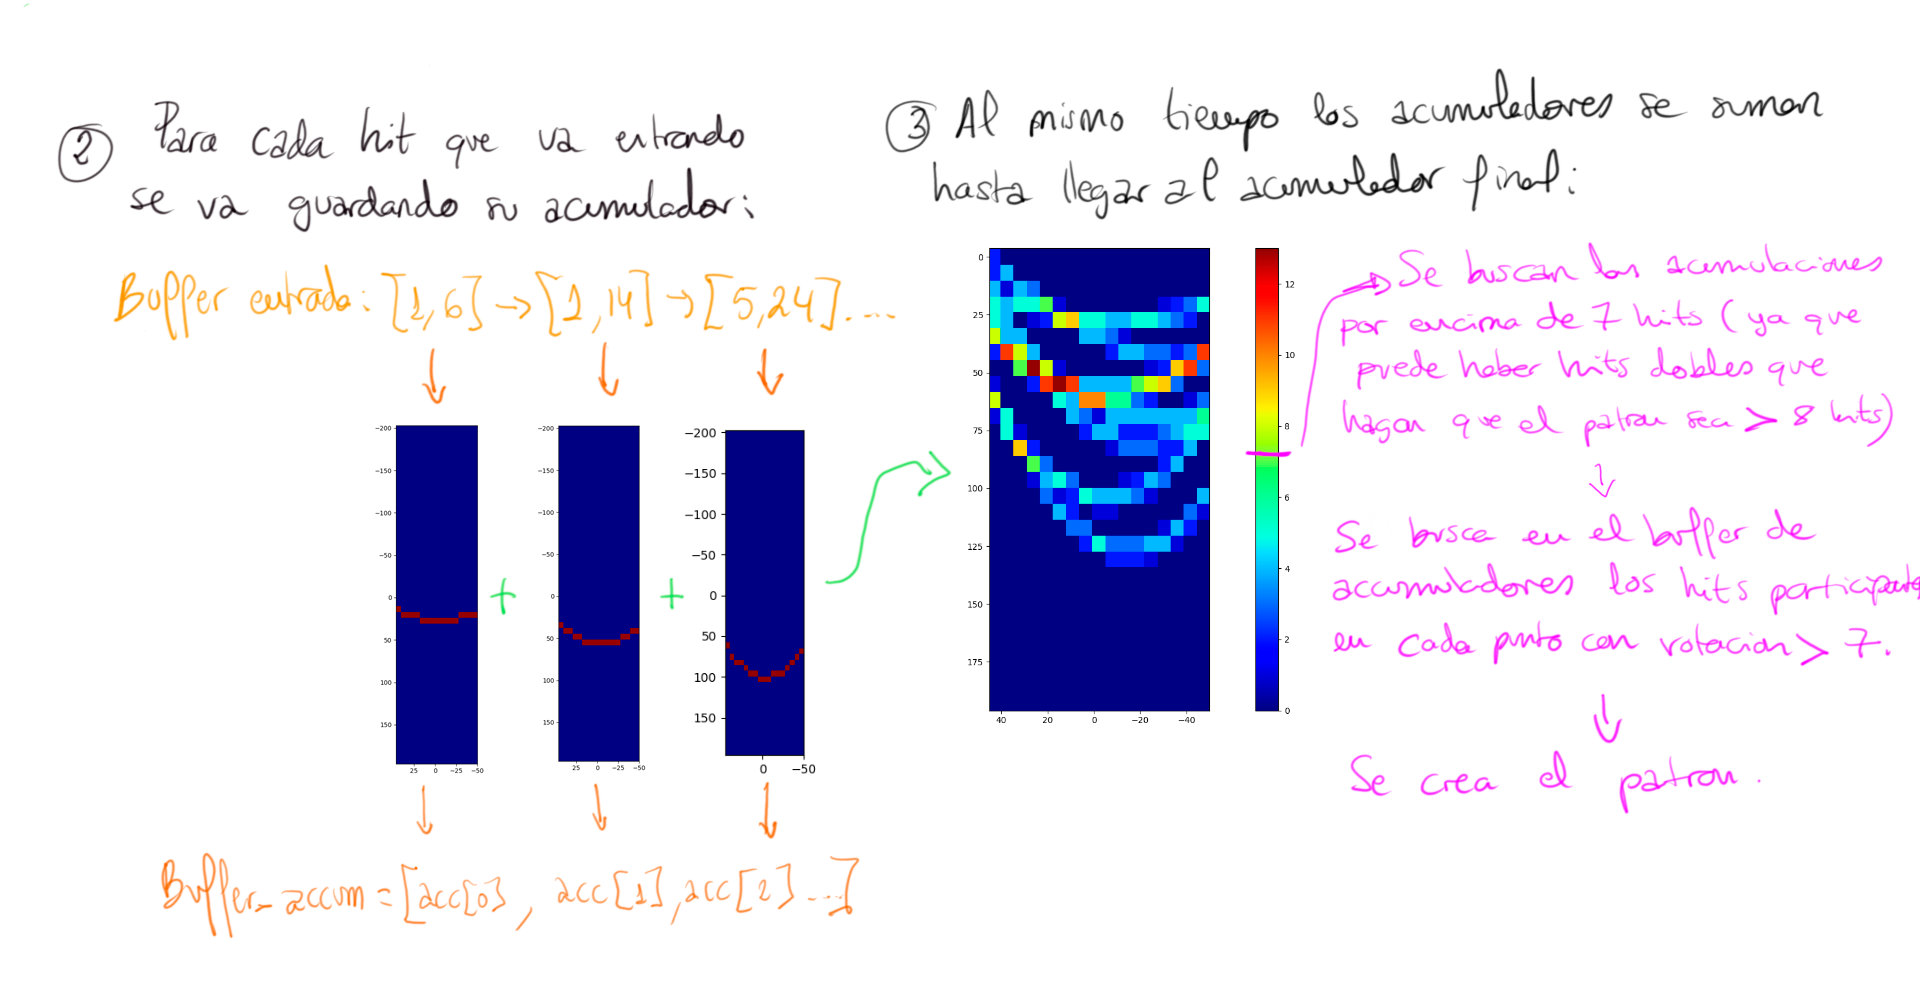 ② Para cada hit que va entrando
se va guardando su acumulador:
Buffer entrada: [1,6] → [1,14] → [5,24]....
−200
−150
−100
−50
0
50
100
150
25 0 −25 −50
+
−200
−150
−100
−50
0
50
100
150
25 0 −25 −50
+
−200
−150
−100
−50
0
50
100
150
0 −50
Buffer_accum = [acc[0], acc[1], acc[2]...]
③ Al mismo tiempo los acumuladores se suman
hasta llegar al acumulador final:
0
25
50
75
100
125
150
175
40 20 0 −20 −40
12
10
8
6
4
2
0
→ Se buscan las acumulaciones
por encima de 7 hits (ya que
puede haber hits dobles que
hagan que el patron sea > 8 hits)
↓
Se busca en el buffer de
accumuladores los hits participantes
en cada punto con votacion > 7.
↓
Se crea el patron.